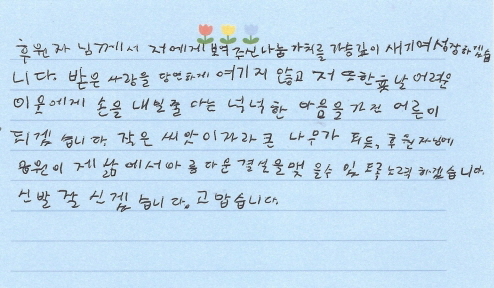 후원자 님께서 저에게 보여 주신 나눔 가치를 가슴깊이 새기며 성장하겠습
니다. 받은 사랑을 당연하게 여기지 않고 저 또한 훗날 어려운
이웃에게 손을 내밀줄 아는 넉넉한 마음을 가진 어른이
되겠습니다. 작은 씨앗이 자라 큰 나무가 되듯, 후원자님에
응원이 제 삶에서 아름다운 결실을 맺을수 있도록 노력하겠습니다.
신발 잘 신겠습니다. 고맙습니다.